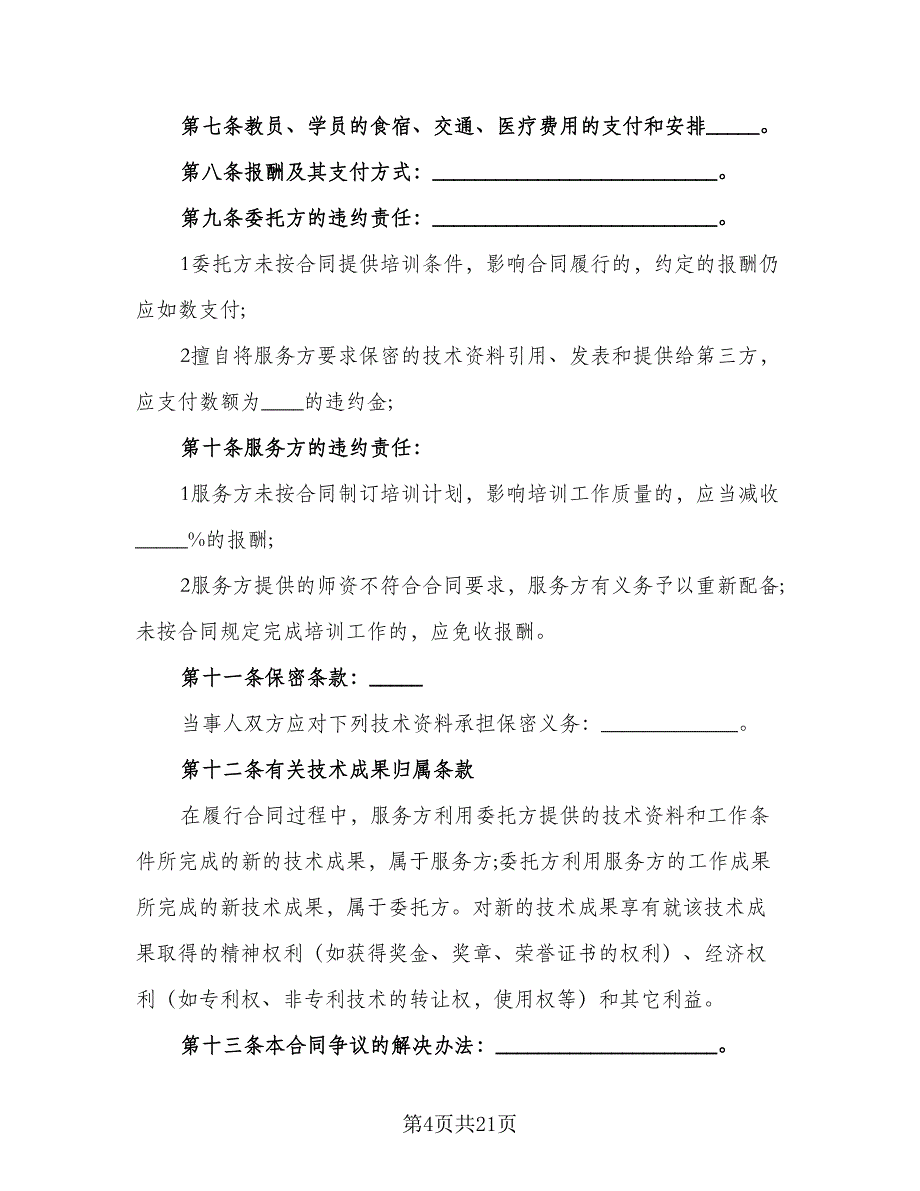 第七条教员、学员的食宿、交通、医疗费用的支付和安排_____。
第八条报酬及其支付方式：___________________________。
第九条委托方的违约责任：___________________________。
1委托方未按合同提供培训条件，影响合同履行的，约定的报酬仍
应如数支付;
2擅自将服务方要求保密的技术资料引用、发表和提供给第三方，
应支付数额为____的违约金;
第十条服务方的违约责任：
1服务方未按合同制订培训计划，影响培训工作质量的，应当减收
_____%的报酬;
2服务方提供的师资不符合合同要求，服务方有义务予以重新配备;
未按合同规定完成培训工作的，应免收报酬。
第十一条保密条款：_____
当事人双方应对下列技术资料承担保密义务：_____________。
第十二条有关技术成果归属条款
在履行合同过程中，服务方利用委托方提供的技术资料和工作条
件所完成的新的技术成果，属于服务方;委托方利用服务方的工作成果
所完成的新技术成果，属于委托方。对新的技术成果享有就该技术成
果取得的精神权利（如获得奖金、奖章、荣誉证书的权利）、经济权
利（如专利权、非专利技术的转让权，使用权等）和其它利益。
第十三条本合同争议的解决办法：_____________________。
第4页共21页